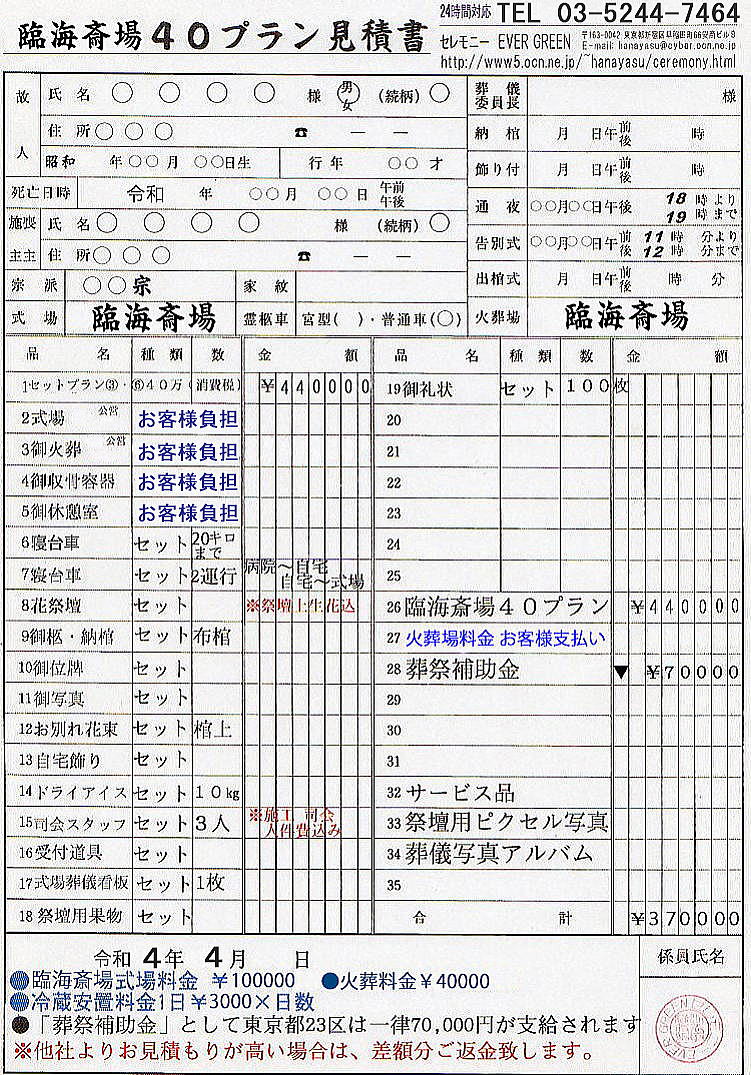 臨海斎場40プラン見積書
24時間対応 TEL 03-5244-7464
セレモニー EVER GREEN
〒163-0042 東京都新宿区早稲田町66安房ビル8
E-mail: hanayasu@cybar.ocn.ne.jp
http://www5.ocn.ne.jp/~hanayasu/ceremony.html
故人 氏名 ○ ○ ○ ○ 様 男女 (続柄) ○
住所 ○ ○ ○ ☎ ― ―
昭和 年○○月 ○○日生 行年 ○○才
死亡日時 令和 年 ○○月 ○○日 午前午後
施主 喪主 氏名 ○ ○ ○ ○ 様 (続柄) ○
住所 ○ ○ ○ ☎ ― ―
宗派 ○○宗 家紋
式場 臨海斎場 霊柩車 宮型( )・普通車(○)
葬儀委員長 様
納棺 月 日午前後 時
飾り付 月 日午前後 時
通夜 ○○月○○日午後 18時より 19時まで
告別式 ○○月○○日午前後 11時 分より 12時 分まで
出棺式 月 日午前後 時 分
火葬場 臨海斎場
品名 種類 数 金額
1セットプラン③・⑥40万(消費税) ¥440000
2式場 公営 お客様負担
3御火葬 公営 お客様負担
4御収骨容器 お客様負担
5御休憩室 お客様負担
6寝台車 セット 20キロまで
7寝台車 セット 2運行 病院～自宅 自宅～式場
8花祭壇 セット ※祭壇上生花込
9御柩・納棺 セット 布棺
10御位牌 セット
11御写真 セット
12お別れ花束 セット 棺上
13自宅飾り セット
14ドライアイス セット 10kg
15司会スタッフ セット 3人 ※施工 司会 人件費込み
16受付道具 セット
17式場葬儀看板 セット 1枚
18祭壇用果物 セット
品名 種類 数 金額
19御礼状 セット 100枚
20
21
22
23
24
25
26 臨海斎場40プラン ¥440000
27 火葬場料金 お客様支払い
28 葬祭補助金 ▼ ¥70000
29
30
31
32 サービス品
33 祭壇用ピクセル写真
34 葬儀写真アルバム
35
合計 ¥370000
令和 4年 4月 日
係員氏名
●臨海斎場式場料金 ¥100000 ●火葬料金¥40000
●冷蔵安置料金1日¥3000×日数
●「葬祭補助金」として東京都23区は一律70,000円が支給されます
※他社よりお見積もりが高い場合は、差額分ご返金致します。